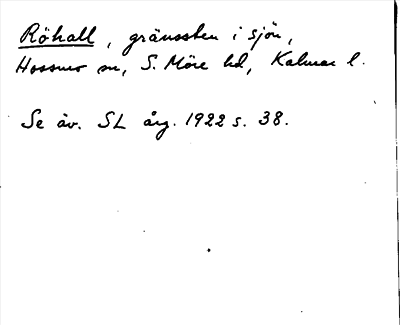 Röhall, gränssten i sjön,
Hossmo sn, S. Möre hd, Kalmar l.
Se äv. SL årg. 1922 s. 38.